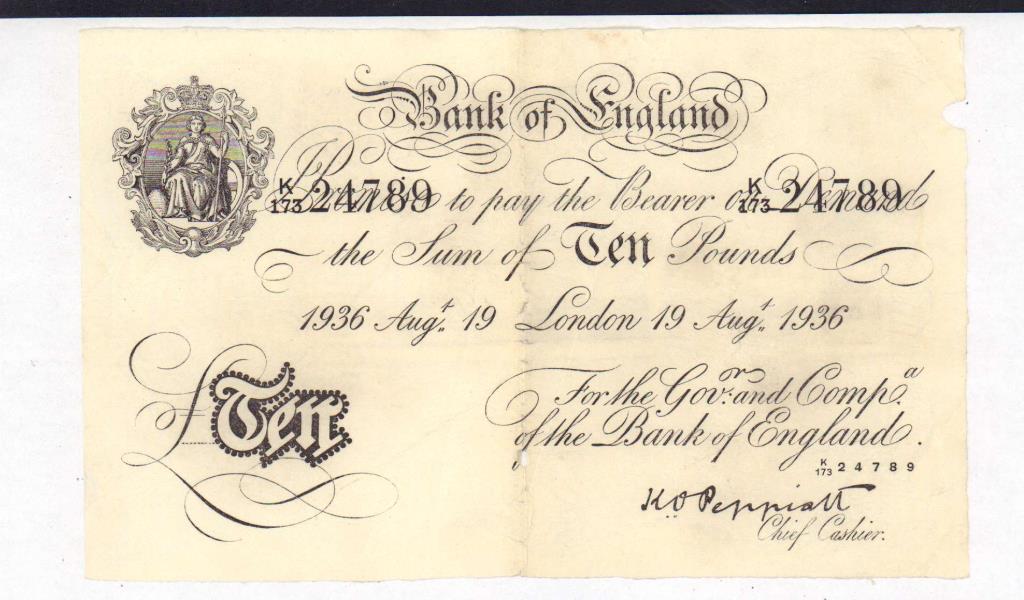 Bank of England
K/173 24789 K/173 24789
I Promise to pay the Bearer on Demand
the Sum of Ten Pounds
1936 Augt. 19 London 19 Augt. 1936
For the Govr. and Compa.
of the Bank of England.
£Ten
K/173 24789
K.O. Peppiatt
Chief Cashier.